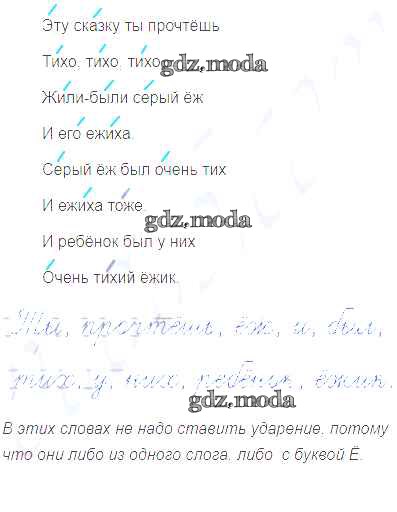 Эту сказку ты прочтёшь
Тихо, тихо, тихо
gdz.moda
Жили-были серый ёж
И его ежиха.
Серый ёж был очень тих
И ежиха тоже
gdz.moda
И ребёнок был у них
Очень тихий ёжик.
Ты, прочтёшь, ёж, и, был,
тих, у, них, ребёнок, ёжик.
gdz.moda
В этих словах не надо ставить ударение, потому
что они либо из одного слога, либо с буквой Ё.